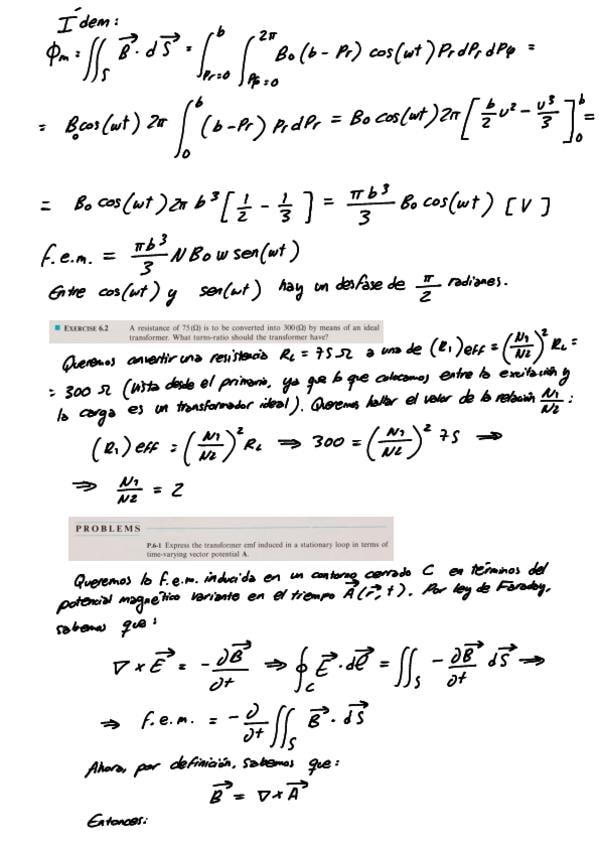 Ídem:
Φm = ∬_S B⃗ · dS⃗ = ∫_{Pr=0}^{b} ∫_{Pφ=0}^{2π} B₀ (b - Pr) cos(wt) Pr dPr dPφ =
= B₀ cos(wt) 2π ∫_0^b (b - Pr) Pr dPr = B₀ cos(wt) 2π [b/2 v² - v³/3]_0^b =
= B₀ cos(wt) 2π b³ [1/2 - 1/3] = πb³/3 B₀ cos(wt) [V]
f.e.m. = πb³/3 N B₀ w sen(wt)
Entre cos(wt) y sen(wt) hay un desfase de π/2 radianes.
■ EXERCISE 6.2 A resistance of 75(Ω) is to be converted into 300(Ω) by means of an ideal
transformer. What turns-ratio should the transformer have?
Queremos convertir una resistencia RL = 75 Ω a una de (R1)eff = (N1/N2)² RL =
= 300 Ω (vista desde el primario, ya que lo que colocamos entre la excitación y
la carga es un transformador ideal). Queremos hallar el valor de la relación N1/N2:
(R1)eff = (N1/N2)² RL ⇒ 300 = (N1/N2)² 75 ⇒
⇒ N1/N2 = 2
PROBLEMS
P.6-1 Express the transformer emf induced in a stationary loop in terms of
time-varying vector potential A.
Queremos la f.e.m. inducida en un contorno cerrado C en términos del
potencial magnético variante en el tiempo A⃗(r⃗, t). Por ley de Faraday,
sabemos que:
∇ × E⃗ = -∂B⃗/∂t ⇒ ∮_C E⃗ · dl⃗ = ∬_S -∂B⃗/∂t dS⃗ ⇒
⇒ f.e.m. = -∂/∂t ∬_S B⃗ · dS⃗
Ahora, por definición, sabemos que:
B⃗ = ∇ × A⃗
Entonces: